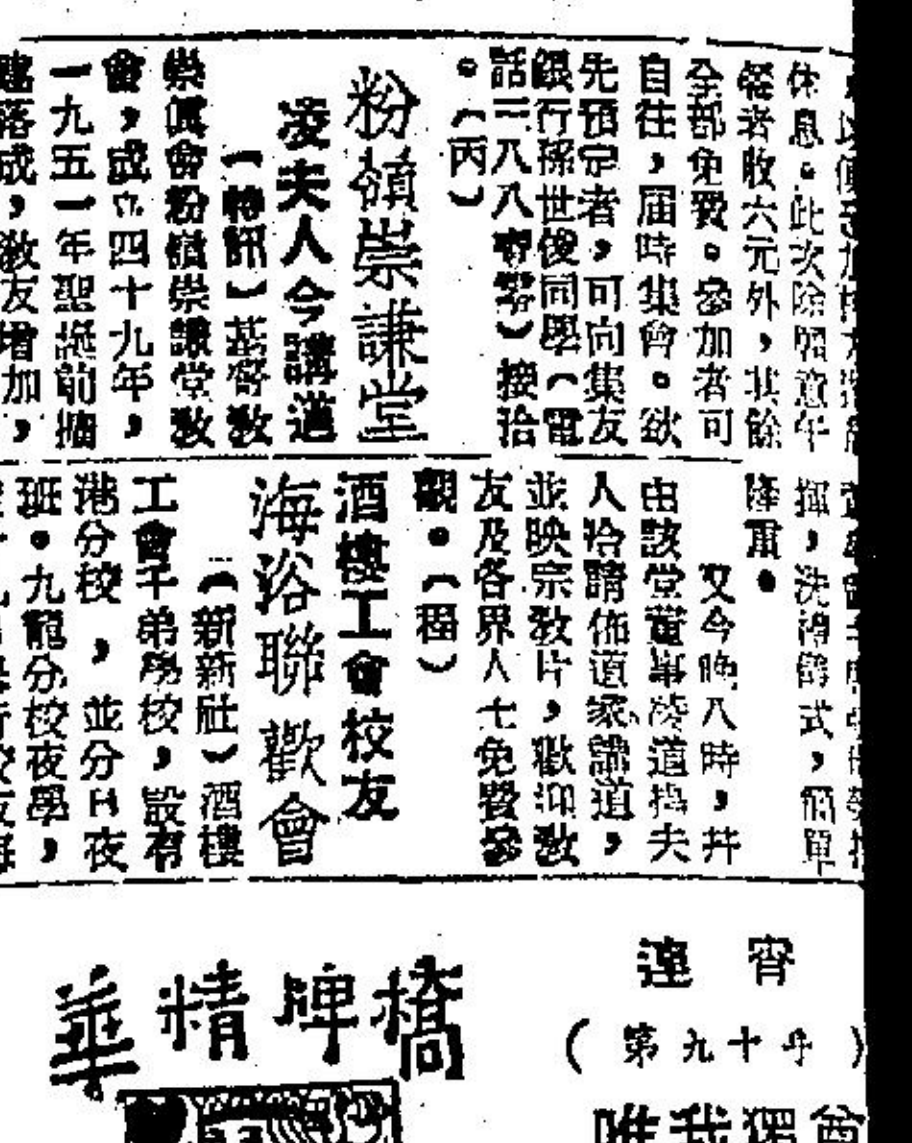 休息。此次除個意午
餐者收六元外,其餘
全部免費。參加者可
自往,届時集會。欲
先預定者,可向集友
銀行孫世俊同學(電
話二八八零零)接洽
。(丙)
粉嶺崇謙堂
凌夫人今講道
(特訊)基督教
崇眞會粉嶺崇謙堂教
會,成立四十九年,
一九五一年聖誕前擴
建落成,教友增加,
式,簡單
隆重。
又今晚八時,并
由該堂董事凌道揚夫
人洽請佈道家講道,
並映宗教片,歡迎教
友及各界人士免費參
觀。(程)
酒樓工會校友
海浴聯歡會
(新新社)酒樓
工會子弟學校,設有
港分校,並分日夜
班。九龍分校夜學,
連宵
(第九十年)
唯我獨尊
橋牌精華